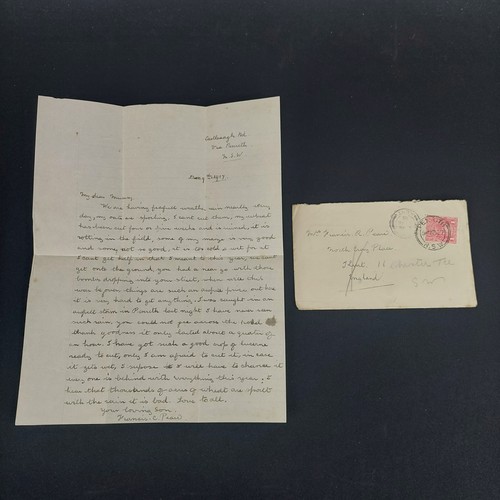 Castlereagh Rd.
Penrith
N.S.W.
My dear Mummy,
We are having frightful weather, rain nearly every
day, my oats are spoiling, I can't cut them, my wheat
has been cut four or five weeks and is ruined, it is
rotting in the field, some of my maize is very good
and some not so good, it is too cold & wet for it
I can't get half in that I meant to this year, as can't
get onto the ground, you had a near go with those
bombs dropping into your street, when will this
war be over, things are such an awful price out here
it is very hard to get anything. I was caught in an
awful storm in Penrith last night I have never seen
such rain, you could not see across the road
thank goodness it only lasted about a quarter of
an hour. I have got such a good crop of lucerne
ready to cut, only I am afraid to cut it, in case
it gets wet, I suppose I will have to chance it
every one is behind with everything this year. I
hear that thousands of acres of wheat are spoilt
with the rain it is bad. Love to all.
Your loving son,
Francis C. Pearse
Mrs Francis A. Pearse
Place
Street
England
S W